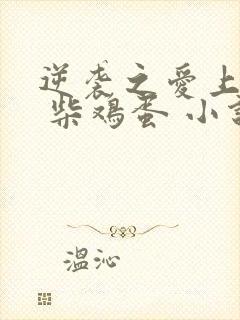 逆袭之爱上
柴鸡蛋 小説
溫沁